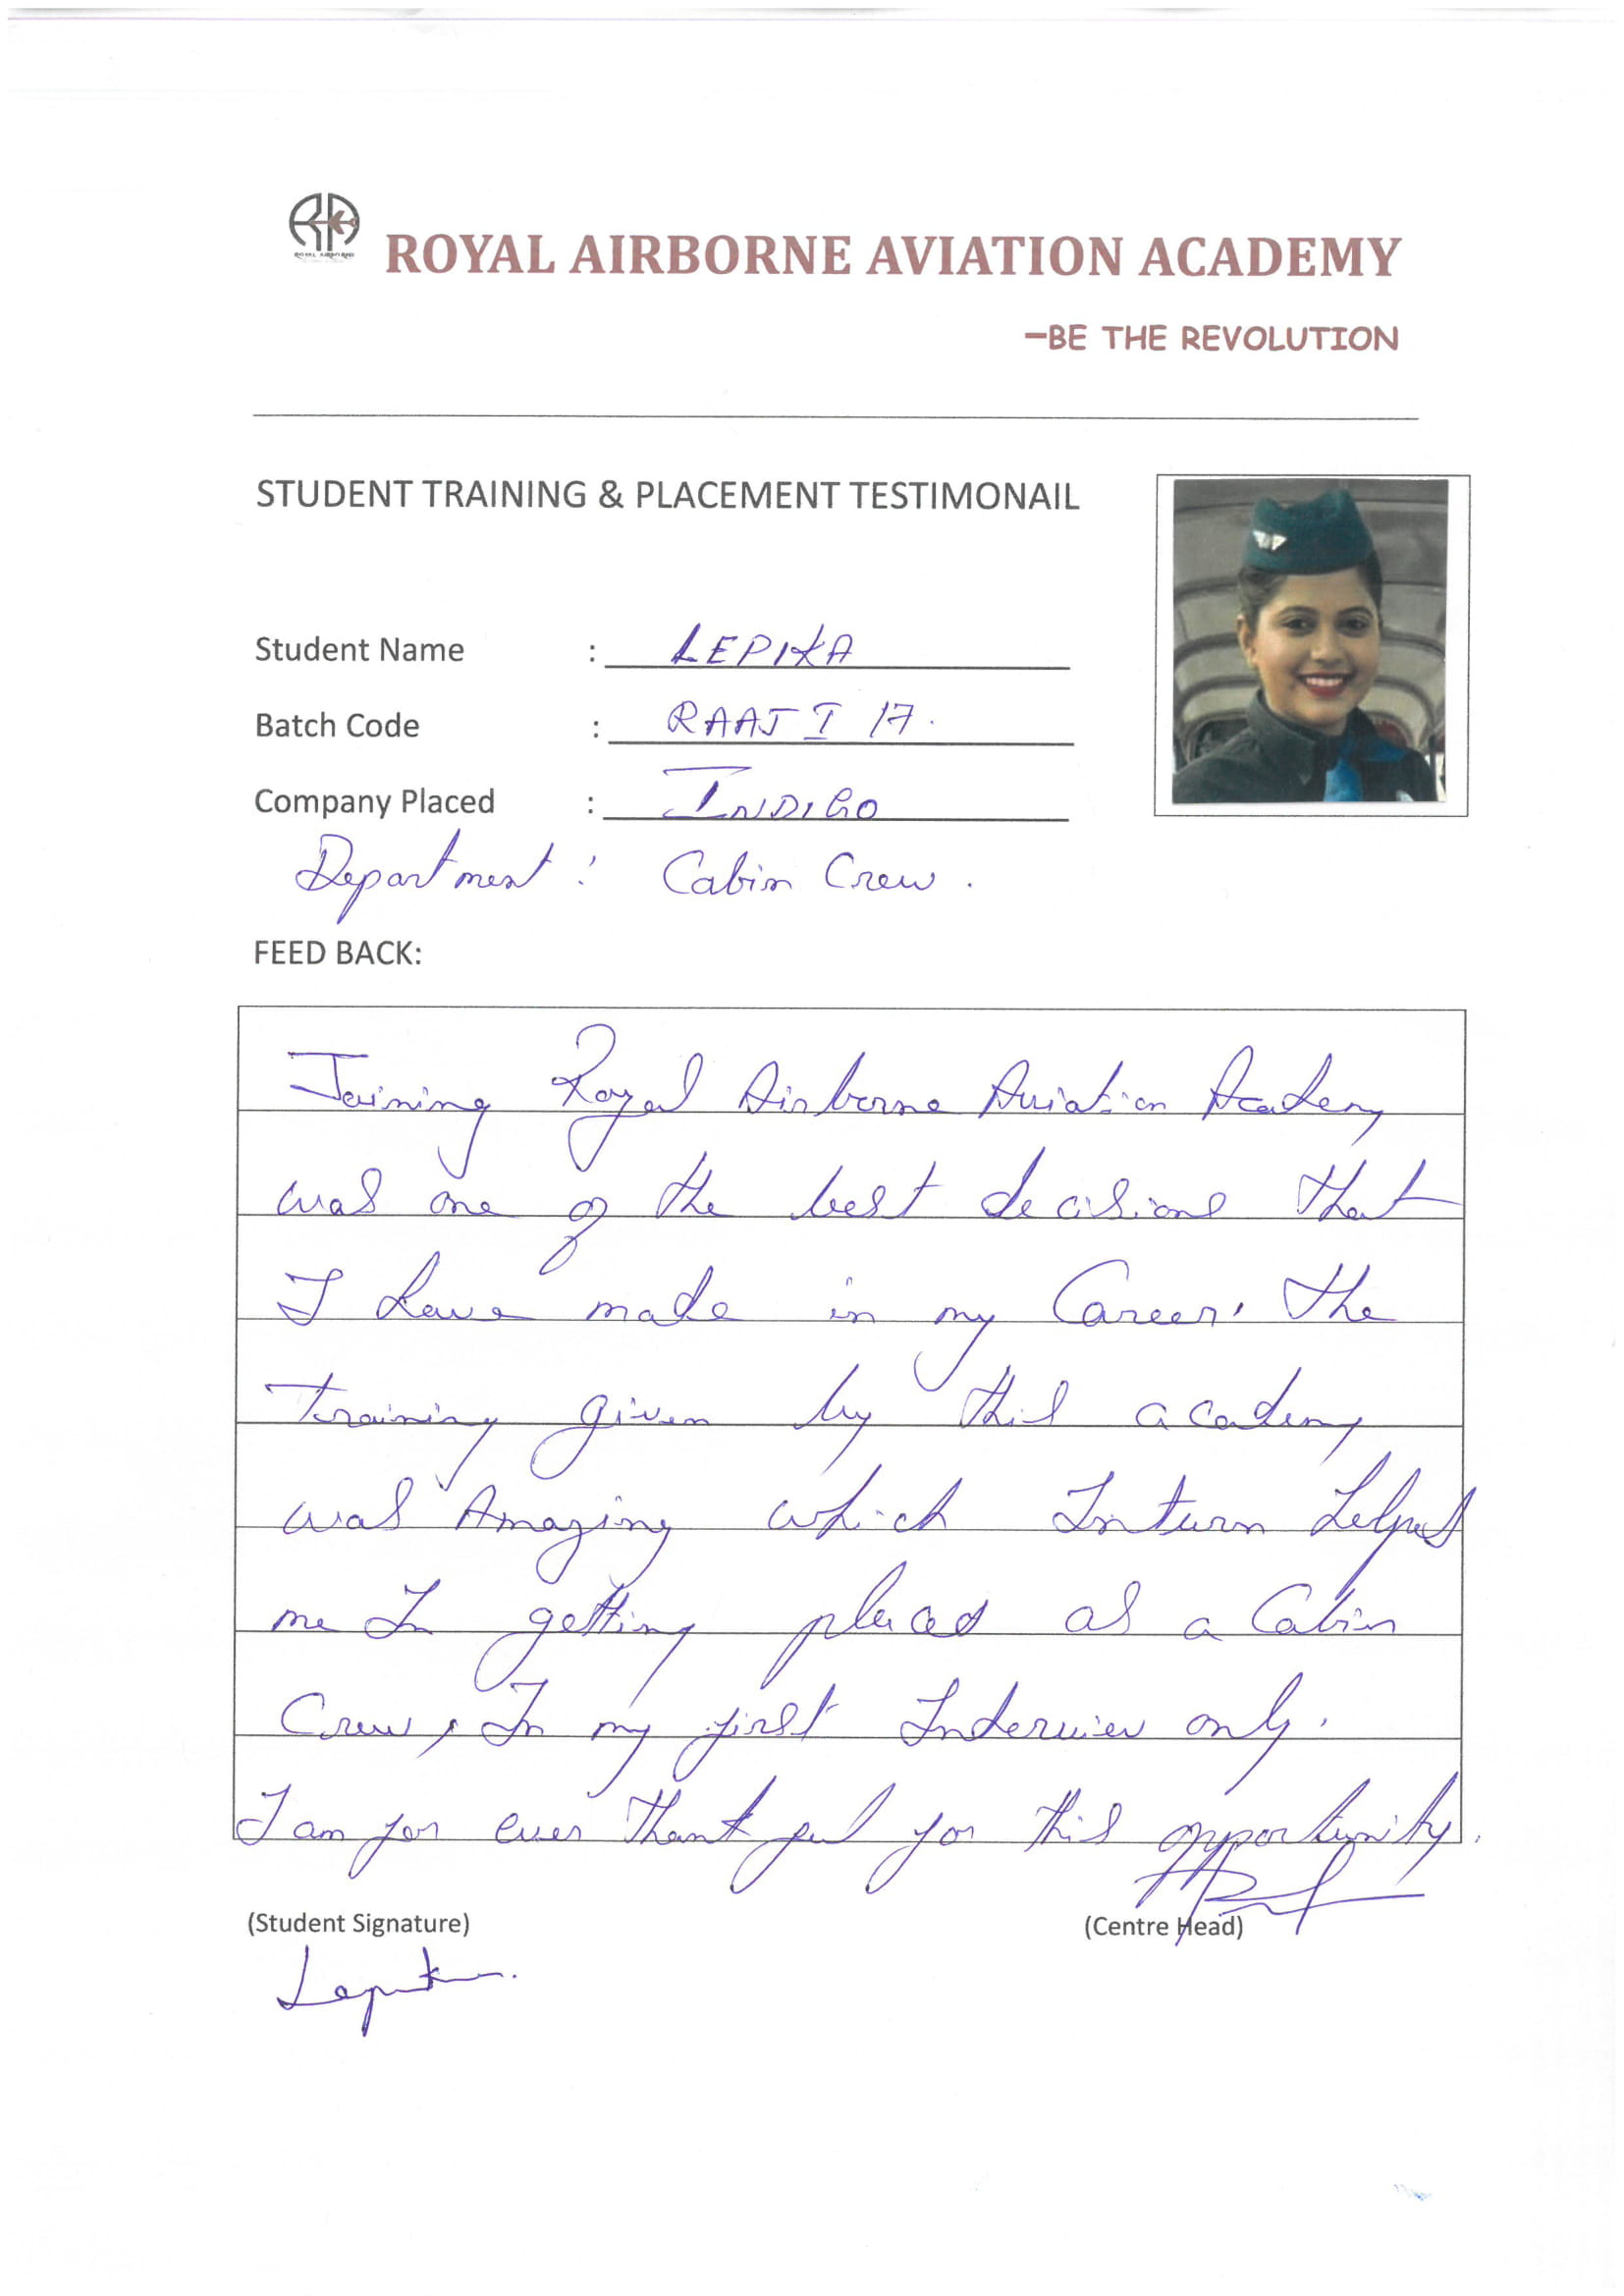 ROYAL AIRBORNE
ROYAL AIRBORNE AVIATION ACADEMY
–BE THE REVOLUTION
STUDENT TRAINING & PLACEMENT TESTIMONAIL
Student Name : LEPIKA
Batch Code : RAAJ I 17.
Company Placed : INDIGO
Department : Cabin Crew.
FEED BACK:
Joining Royal Airborne Aviation Academy
was one of the best decisions that
I have made in my Career. The
training given by this academy
was Amazing which Inturn helped
me In getting placed as a Cabin
Crew, In my first Interview only.
I am for ever thankful for this opportunity.
(Student Signature) (Centre Head)
Lepika